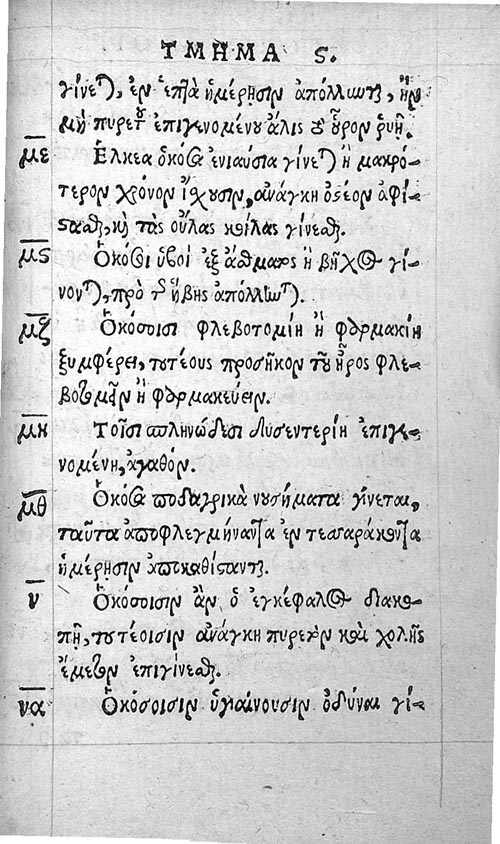 ΤΜΗΜΑ ϛ.
γίνεται, ἐν ἑπτὰ ἡμέρῃσιν ἀπόλλωνται, ἢν
μὴ πυρετοῦ ἐπιγενομένου ἅλις τὸ οὖρον ῥυῇ.
με Ἕλκεα ὁκόσα ἐνιαύσια γίνεται ἢ μακρό-
τερον χρόνον ἴχουσιν, ἀνάγκη ὀστέον ἀφί-
στασθαι, καὶ τὰς οὐλὰς κοίλας γίνεσθαι.
μϛ Ὁκόσοι ὑβοὶ ἐξ ἄσθματος ἢ βηχὸς γί-
νονται, πρὸ τῆς ἥβης ἀπόλλωνται.
μζ Ὁκόσοισι φλεβοτομίη ἢ φαρμακίη
ξυμφέρει, τουτέους προσῆκον τοῦ ἦρος φλε-
βοτομεῖν ἢ φαρμακεύειν.
μη Τοῖσι σπληνώδεσι δυσεντερίη ἐπιγε-
νομένη, ἀγαθόν.
μθ Ὁκόσα ποδαγρικὰ νουσήματα γίνεται,
ταῦτα ἀποφλεγμήναντα ἐν τεσσαράκοντα
ἡμέρῃσιν ἀποκαθίστανται.
ν Ὁκόσοισιν ἂν ὁ ἐγκέφαλος διακο-
πῇ, τουτέοισιν ἀνάγκη πυρετὸν καὶ χολῆς
ἔμετον ἐπιγίνεσθαι.
να Ὁκόσοισιν ὑγιαίνουσιν ὀδύναι γί-